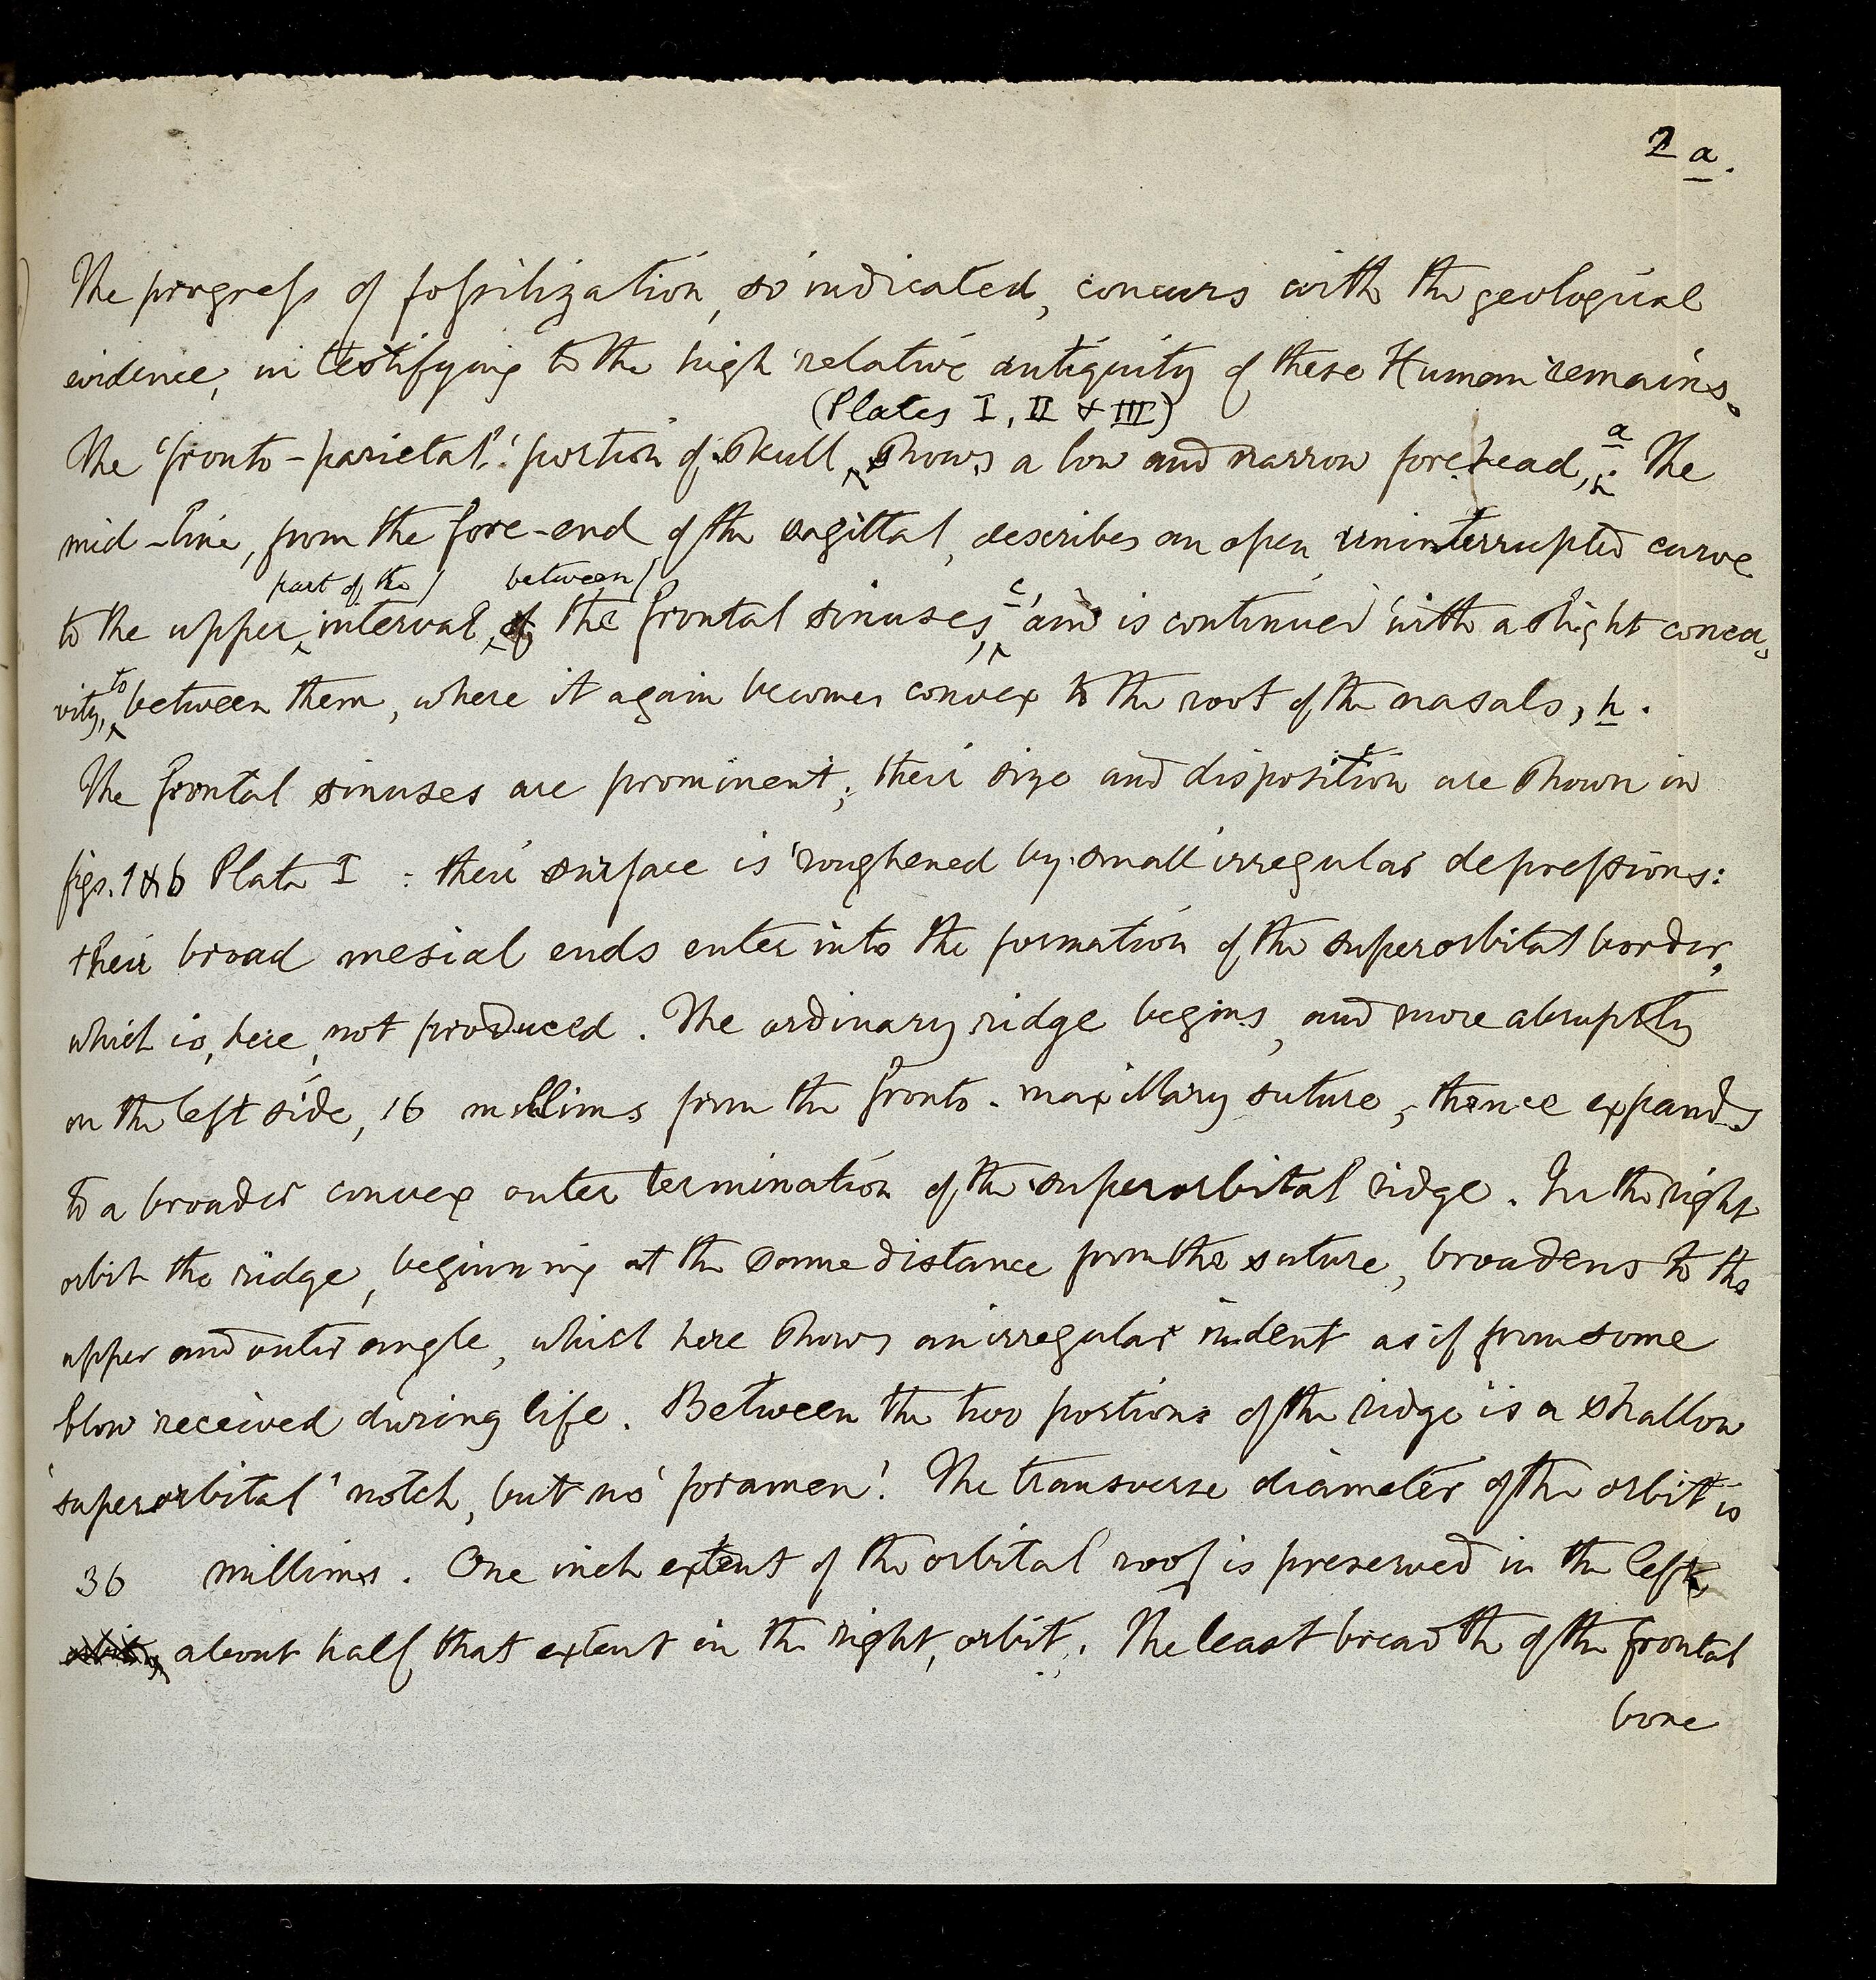 2 a.
The progress of fossilization, so indicated, concurs with the geological
evidence, in testifying to the high relative antiquity of these Human remains.
(Plates I, II & III)
The 'fronto-parietal' portion of skull, shows a low and narrow forehead, a. The
mid-line, from the fore-end of the sagittal, describes an open uninterrupted curve
part of the between
to the upper interval of the frontal sinuses, c, and is continued with a slight conca-
vity, to between them, where it again becomes convex to the root of the nasals, h.
The frontal sinuses are prominent; their size and disposition are shown in
figs. 1 & 6 Plate I : their surface is roughened by small irregular depressions:
their broad mesial ends enter into the formation of the superorbital border,
which is, here, not produced. The ordinary ridge begins, and more abruptly
on the left side, 16 millims from the fronto-maxillary suture, thence expands
to a broader convex outer termination of the superorbital ridge. In the right
orbit the ridge, beginning at the same distance from the suture, broadens to the
upper and outer angle, which here shows an irregular indent as if from some
blow received during life. Between the two portions of the ridge is a shallow
'superorbital' notch, but no 'foramen'. The transverse diameter of the orbit is
36 millims. One inch extent of the orbital roof is preserved in the left,
about half that extent in the right, orbit. The least breadth of the frontal
bone